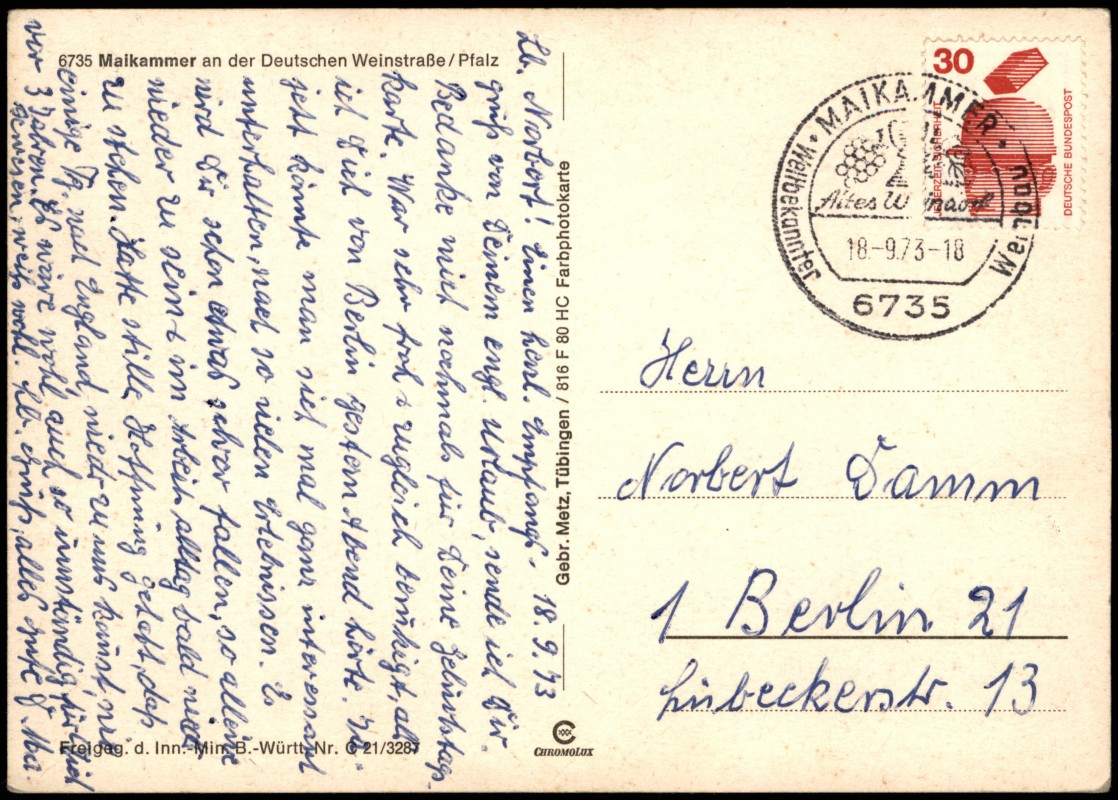 6735 Maikammer an der Deutschen Weinstraße/Pfalz
18.9.73
Lb. Norbert! Einen herzl. Empfangs-
gruß von Deinem engl. Urlaub, sende ich Dir.
Bedanke mich nochmals für Deine Geburtstags-
karte. War sehr froh u. zugleich beruhigt, als
ich Dich von Berlin gestern Abend hörte. Bis
jetzt könnte man sich mal ganz interessant
unterhalten, nach so vielen Erlebnissen. Es
wird Dir schon etwas schwer fallen, so alleine
wieder zu sein u. im Arbeitsalltag bald wieder
zu stehen. Hatte stille Hoffnung gehabt, daß
einige Tg. nach England, wieder zu uns kämst, wie
vor 3 Jahren. Es wäre wohl auch so umständig, für Dich
gewesen, weiß wohl. Lb. Gruß, alles Gute
Gebr. Metz, Tübingen / 816 F 80 HC Farbphotokarte
Freigeg. d. Inn.-Min. B.-Württ. Nr. G 21/3287
CHROMOLUX
30
DEUTSCHE BUNDESPOST
JEDERZEIT SICHERHEIT
MAIKAMMER
Weltbekannter
Weinbau
Altes
18.-9.73-18
6735
Herrn
Norbert Damm
1 Berlin 21
Lübeckerstr. 13